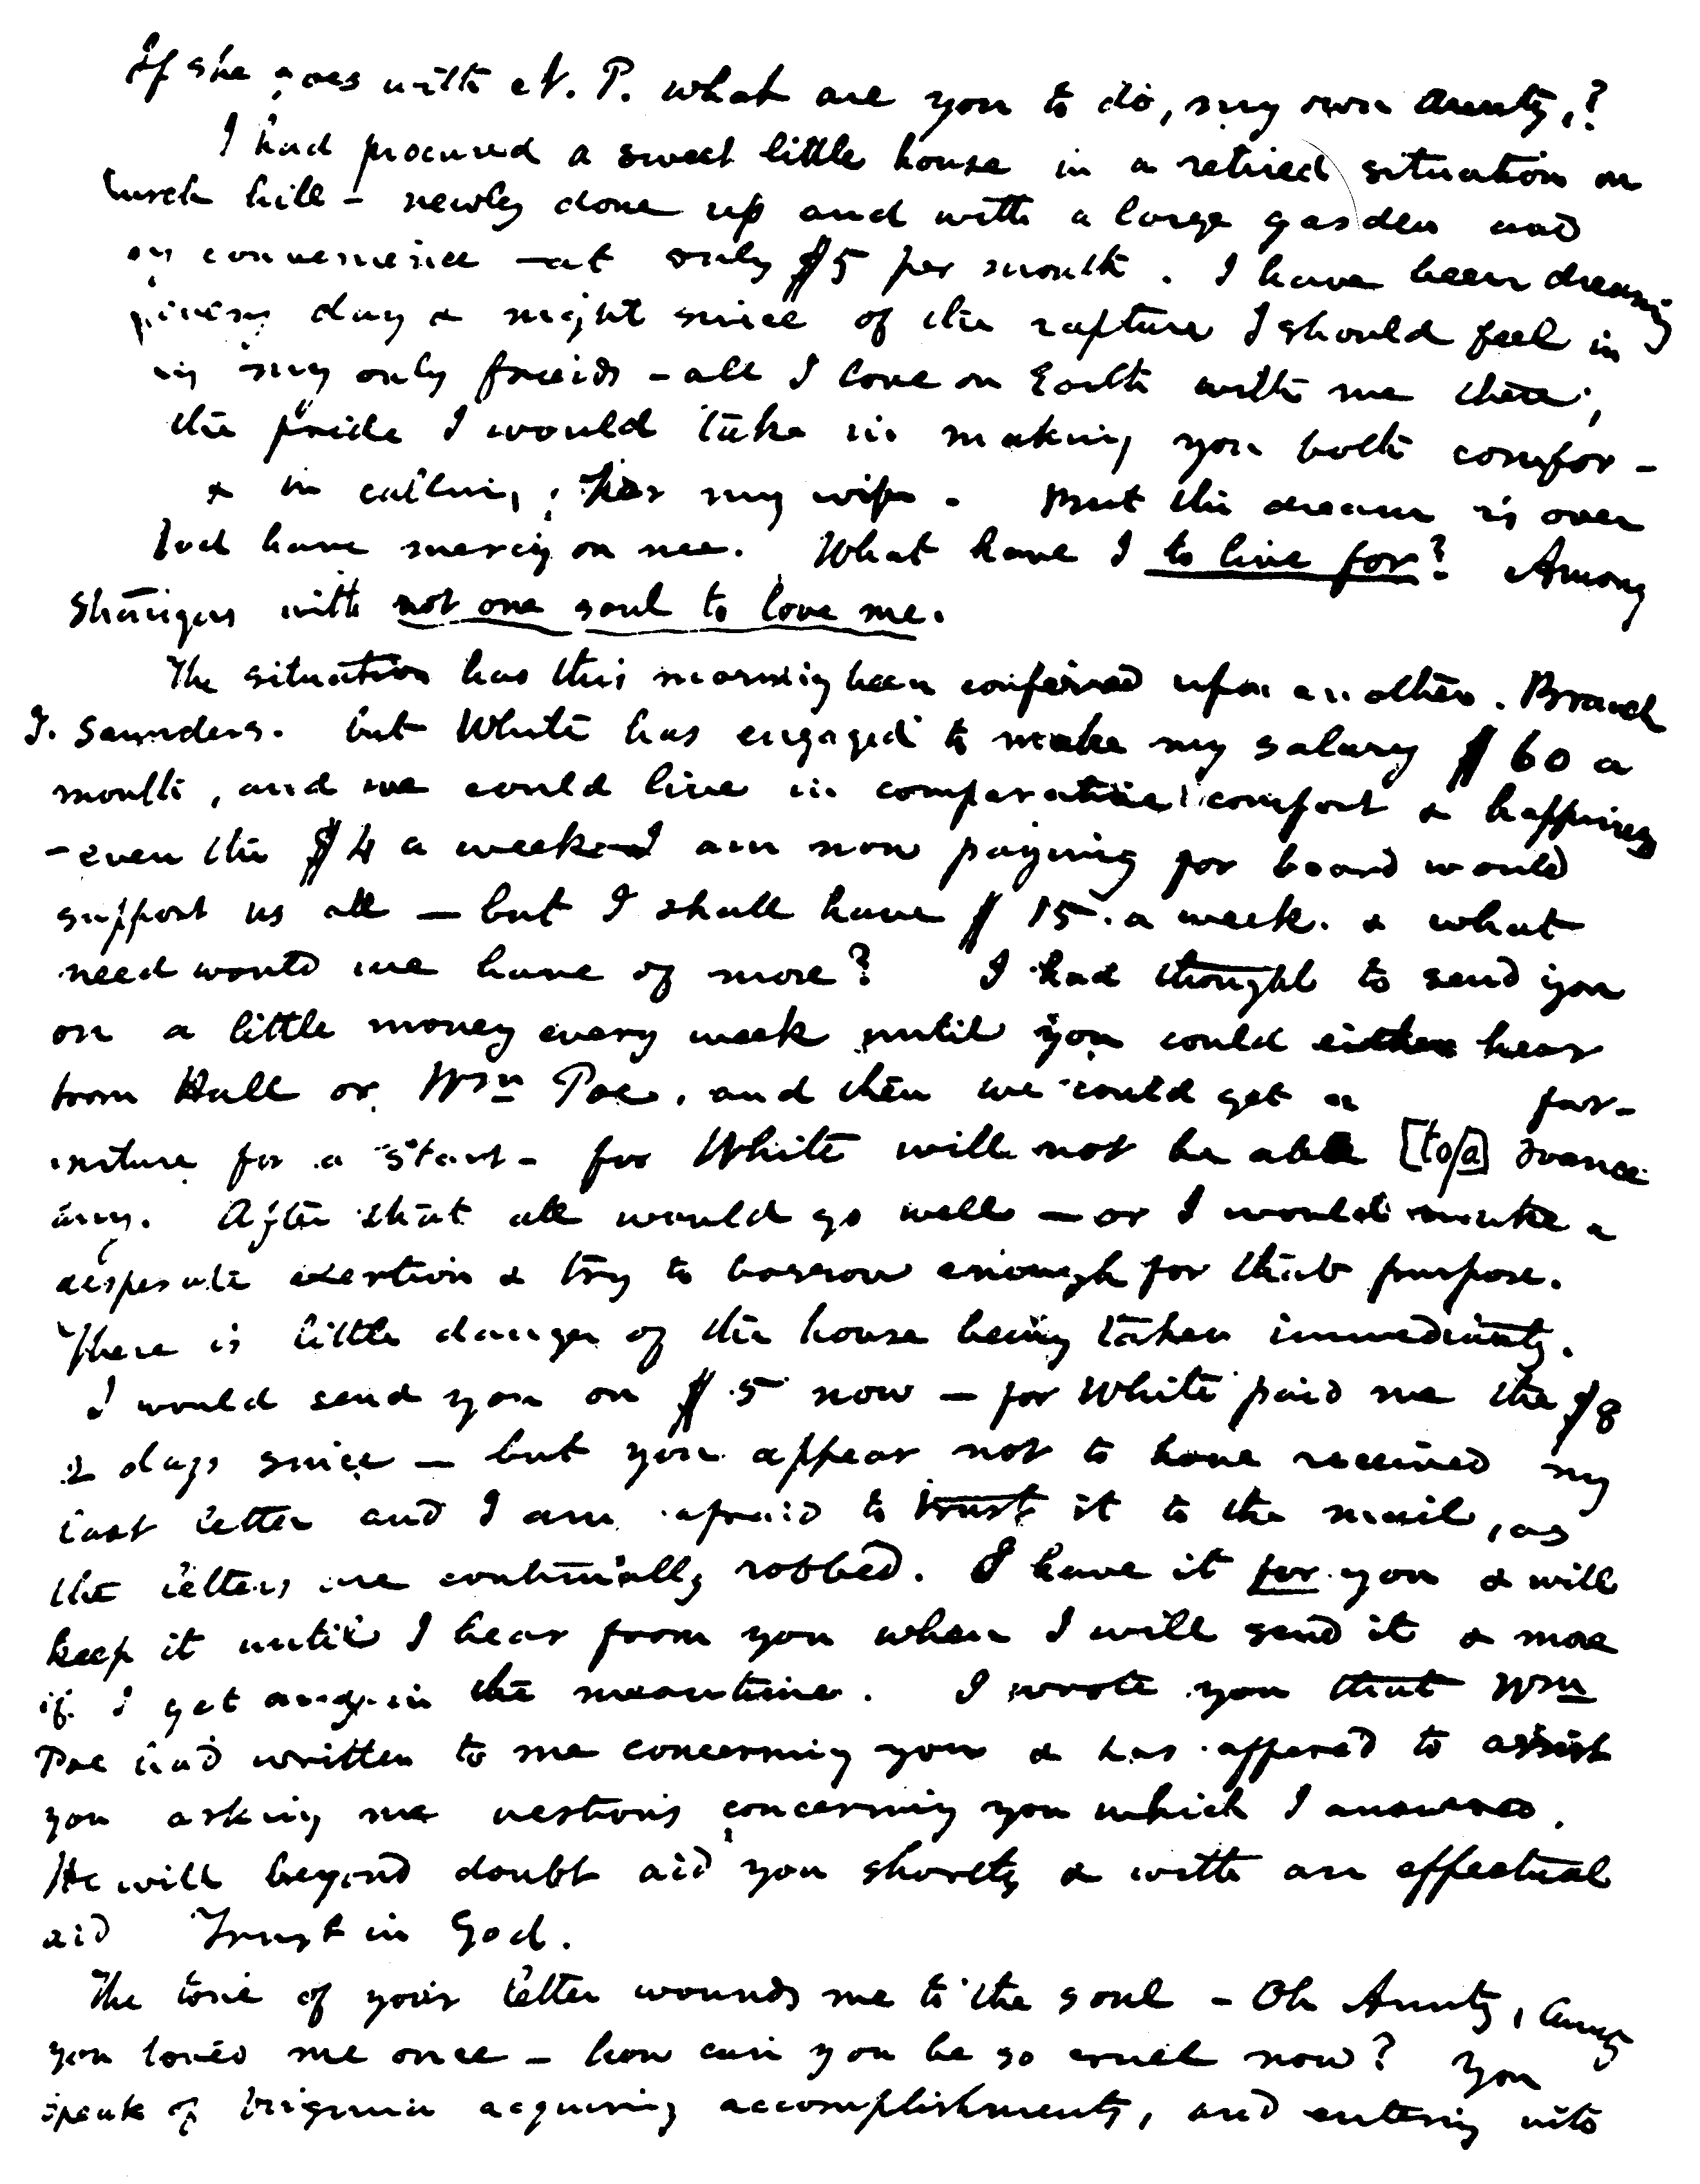 If she goes with N. P. what are you to do, my own Aunty,?
I had procured a sweet little house in a retired situation on
hurch hill - newly done up and with a large garden and
convenience - at only $5 per month. I have been dreaming
every day & night since of the rapture I should feel in
my only friends - all I love on Earth with me there,
the pride I would take in making you both comfor-
& in calling her my wife. But the dream is over
God have mercy on me. What have I to live for? Among
strangers with not one soul to love me.
The situation has this morning been conferred upon another. Branch
T. Saunders. but White has engaged to make my salary $60 a
month, and we could live in comparative comfort & happiness
- even the $4 a week I am now paying for board would
support us all - but I shall have $15. a week. & what
need would we have of more? I had thought to send you
on a little money every week until you could either hear
from Hall or Wm Poe, and then we could get a fur-
niture for a start - for White will not be able [to a] dvance
any. After that all would go well - or I would make a
desperate exertion & try to borrow enough for that purpose.
There is little danger of the house being taken immediately.
I would send you on $5 now - for White paid me the $8
2 days since - but you appear not to have received my
last letter and I am afraid to trust it to the mail, as
the letters are continually robbed. I have it for you & will
keep it until I hear from you when I will send it & more
if I get any in the meantime. I wrote you that Wm
Poe had written to me concerning you & has offered to assist
you asking me uestions concerning you which I answered.
He will beyond doubt aid you shortly & with an effectual
aid Trust in God.
The tone of your letter wounds me to the soul - Oh Aunty, Aunty
you loved me once - how can you be so cruel now? You
speak of Virginia acquiring accomplishments, and entering into